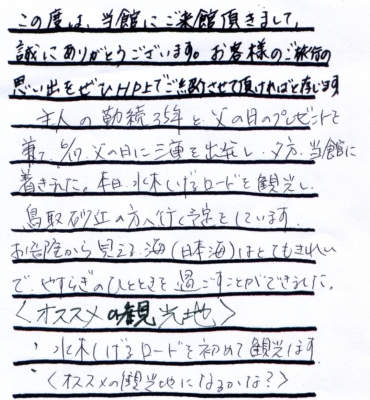 この度は、当館にご来館頂きまして、
誠にありがとうございます。お客様のご旅行の
思い出をぜひHP上でご紹介させて頂ければと存じます
主人の勤続35年と、父の日のプレゼントを
兼ね、6/17.父の日に三重を出発し、夕方、当館に
着きました。本日、水木しげるロードを観光し、
鳥取砂丘の方へ行く予定をしています。
お部屋から見える海(日本海)はとてもきれい
で、やすらぎのひとときを過ごすことができました。
〈オススメの観光地〉
水木しげるロードを初めて観光します
〈オススメの観光地になるかな?〉